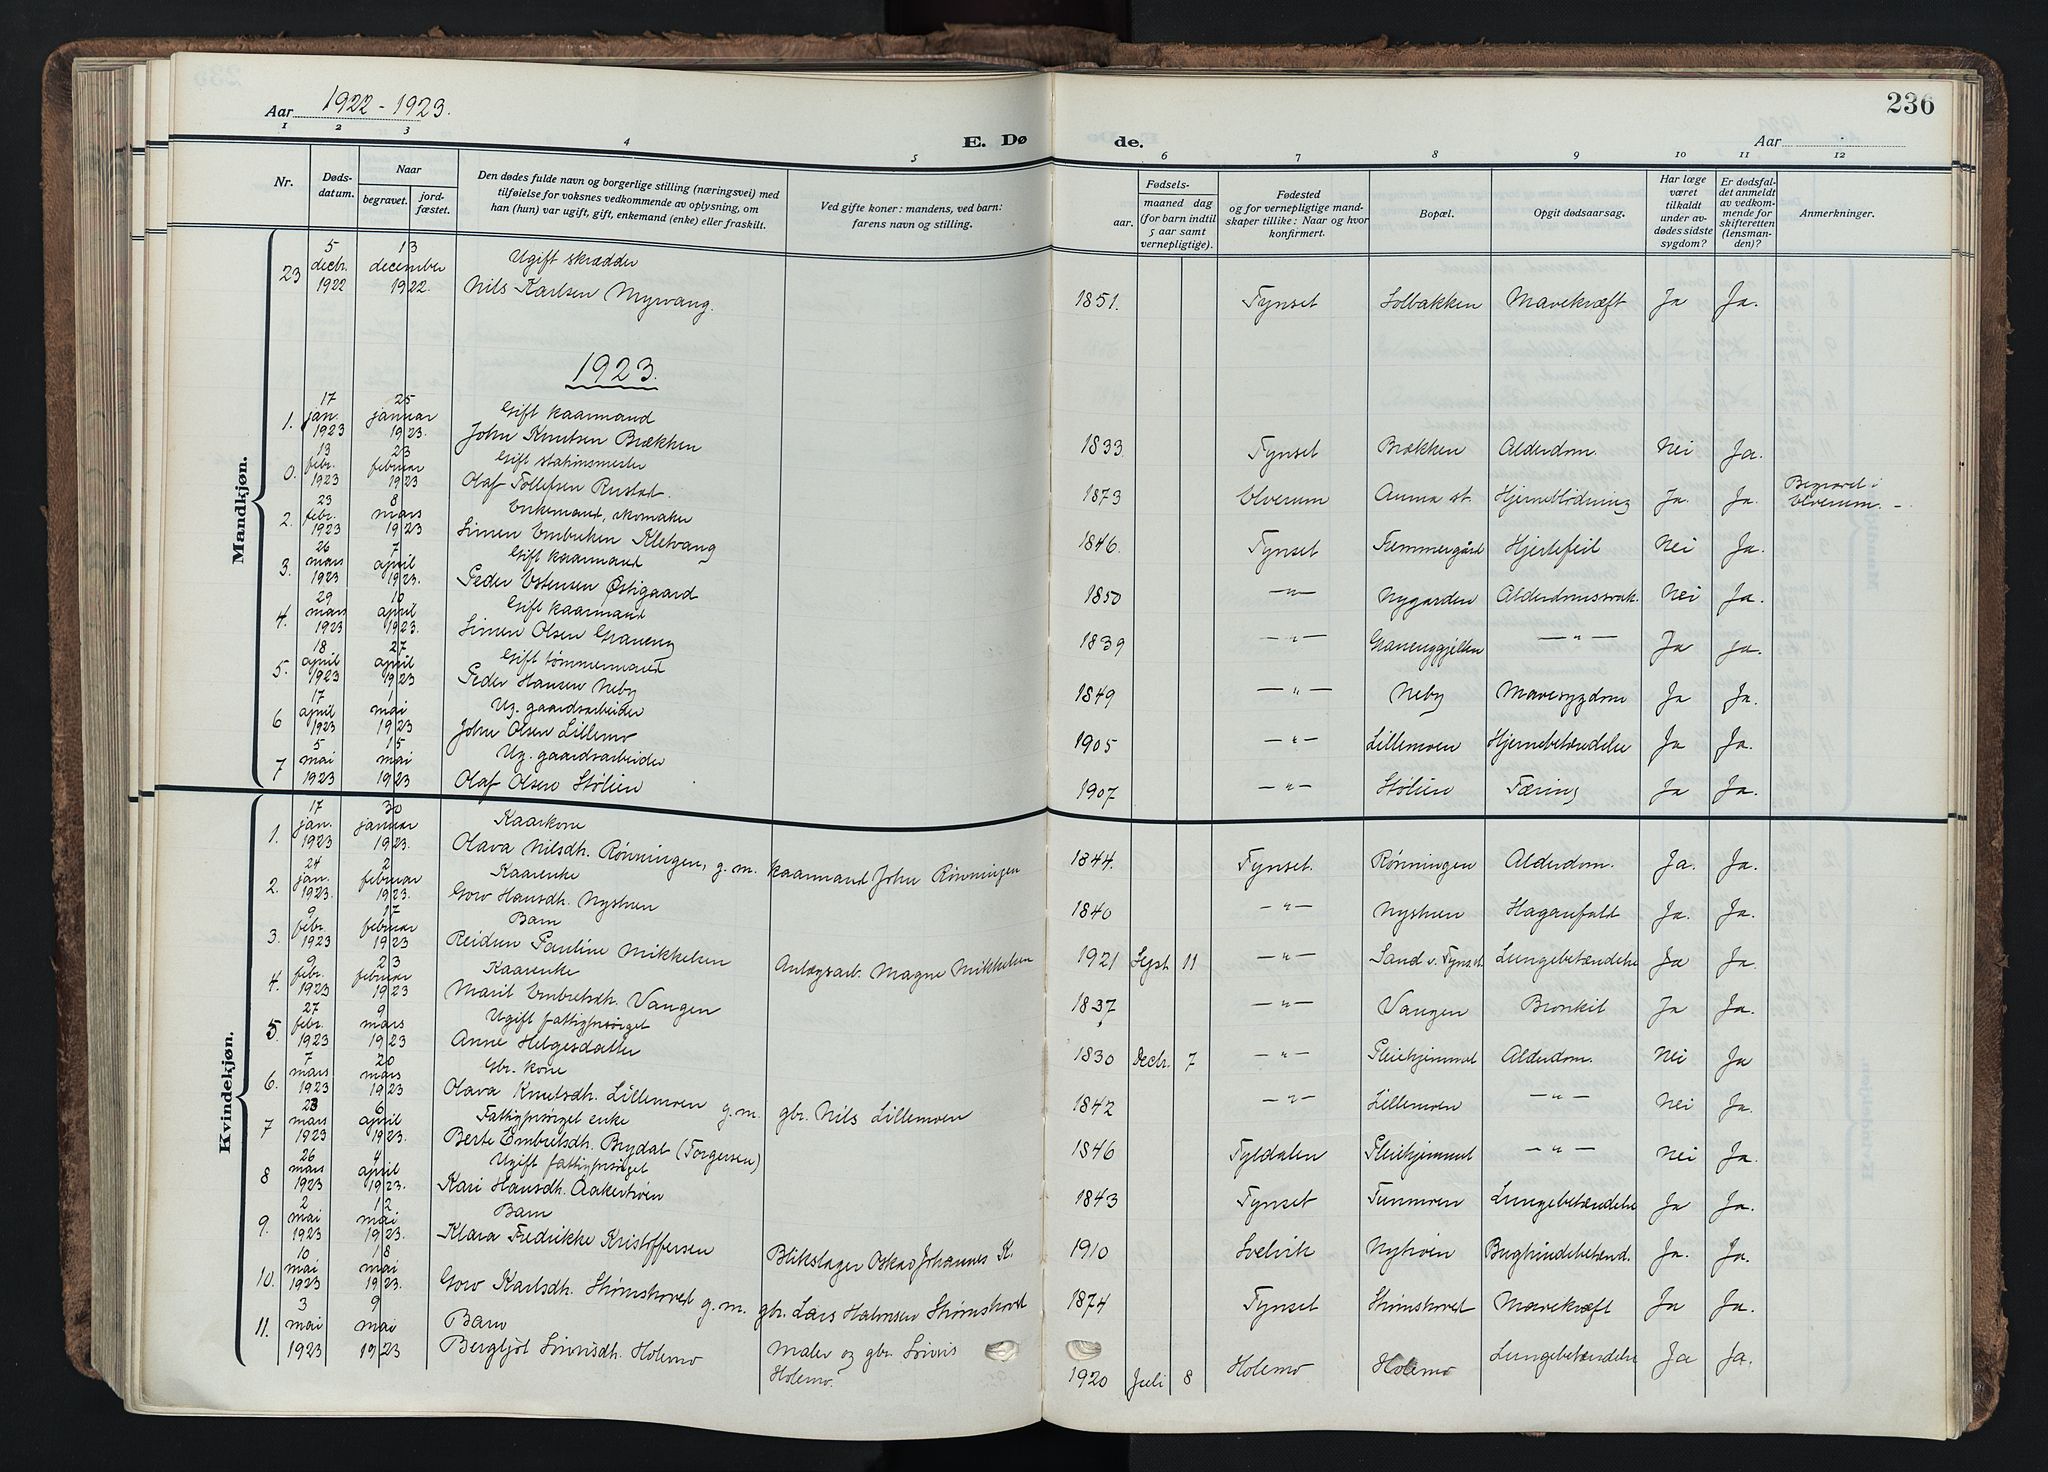 236
Aar 1922 - 1923.
E. Dø de.
Aar
1 2 3 4 5 6 7 8 9 10 11 12
Nr.
Døds-
datum.
Naar
begravet.
jord-
fæstet.
Den dødes fulde navn og borgerlige stilling (næringsvei) med
tilføielse for voksnes vedkommende av oplysning, om
han (hun) var ugift, gift, enkemand (enke) eller fraskilt.
Ved gifte koner: mandens, ved barn:
farens navn og stilling.
Fødsels-
aar. maaned dag
(for barn indtil
5 aar samt
vernepligtige).
Fødested
og for vernepligtige mand-
skaper tillike: Naar og hvor
konfirmert.
Bopæl.
Opgit dødsaarsag.
Har læge
været
tilkaldt
under av-
dødes sidste
sygdom?
Er dødsfal-
det anmeldt
av vedkom-
mende for
skifteretten
(lensman-
den)?
Anmerkninger.
Mandkjøn.
23 5 decbr. 1922 13 december 1922. Ugift skrædder
Nils Karlsen Myrvang. 1851. Tynset Solbakken Mavekræft Ja Ja.
1923.
1. 17 jan. 1923 25 januar 1923. Gift kaarmand
John Knutsen Brækken 1833 Tynset Brækken Alderdom. Nei Ja.
0. 13 febr. 1923 23 februar 1923 Gift stationsmester
Olaf Tollefsen Rustad. 1873 Elverum Auma st. Hjerneblødning Ja. Ja. Begravet i
Elverum.
2. 23 febr. 1923 8 mars 1923 Enkemand, skomaker
Simen Embretsen Kletvang 1846. Tynset Hjertefeil Nei Ja.
3. 26 mars 1923 7 april 1923. Gift kaarmand
Peder Estensen Østigaard 1850 —"— Nygarden Alderdomssvak. Nei Ja.
4. 29 mars 1923 10 april 1923. Gift kaarmand
Simen Olsen Graneng 1839 —"— —"— Ja Ja.
5. 18 april 1923 27 april 1923 Gift tømmermand
Peder Hansen Neby 1849 —"— Neby Mavesygdom Ja Ja.
6 17 april 1923 1 mai 1923 Ug. gaardsarbeider
John Olsen Lillemo 1905 —"— Lillemoen Hjernebetændelse Ja Ja.
7 5 mai 1923 15 mai 1923 Ug. gaardsarbeider
Olaf Olsen Stølien 1907 —"— Stølien Tæring Ja Ja.
Kvindekjøn.
1. 17 jan. 1923 30 januar 1923. Kaarkone
Olava Nilsdh. Rønningen, g. m. kaarmand John Rønningen 1844. Tynset. Rønningen Alderdom. Ja. Ja.
2. 24 jan. 1923. 2 februar 1923 Kaarenke
Goro Hansdh. Nystuen 1840 —"— Nystuen Ja. Ja.
3. 9 febr. 1923 17 februar 1923 Barn
Reidun Pauline Mikkelsen Anlægsarb. Magne Mikkelsen 1921 Sept. 11 —"— Sand v. Tynset Lungebetændelse Ja Ja.
4. 9 febr. 1923 23 februar 1923 Kaarenke
Marit Embretsdh. Vangen 1837 —"— Vangen Bronkit Ja Ja.
5. 27 febr. 1923 9 mars 1923 Ugift fattigforsørget
Anne Helgesdatter 1830 Decbr. 7 —"— Pleiehjemmet Alderdom. Nei Ja
6. 7 mars 1923 20 mars 1923 Gbr. kone
Olava Knutsdh. Lillemoen g. m. gbr. Nils Lillemoen 1842 —"— Lillemoen —"— Nei Ja.
7 23 mars 1923 6 april 1923. Fattigforsørget enke
Berte Embretsdh. Brydal (Torgersen) 1846 Tyldalen Pleiehjemmet —"— Nei Ja.
8 26 mars 1923 4 april 1923. Ugift fattigforsørget
Kari Hansdh. Aakertrøen 1843 Tynset Tunmoen Lungebetændelse Ja Ja.
9. 2 mai 1923 12 mai 1923. Barn
Klara Fredrikke Kristoffersen Blikslager Oskar Johannes K. 1910 Svelvik Nytrøen Bughindebetænd. Ja. Ja.
10. 10 mai 1923 18 mai 1923. Goro Karlsdh. Strømshoved g. m. gbr. Lars Halvorsen Strømshoved 1874 Tynset Strømshoved Mavekræft Ja Ja.
11. 3 mai 1923 9 mai 1923 Barn
Bergljot Sivrisdh. Holemo Maler og gbr. Sivris
Holemo. 1920 Juli 8 Holemo Holemo Lungebetændelse Ja Ja.